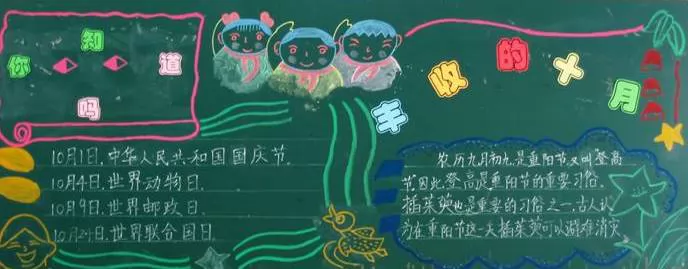 你知道吗
丰收的十月
10月1日.中华人民共和国国庆节.
10月4日.世界动物日.
10月9日.世界邮政日.
10月24日.世界联合国日.
农历九月初九是重阳节又叫“登高
节”因此登高是重阳节的重要习俗.
插茱萸也是重要的习俗之一.古人认
为在重阳节这一天插茱萸可以避难消灾.